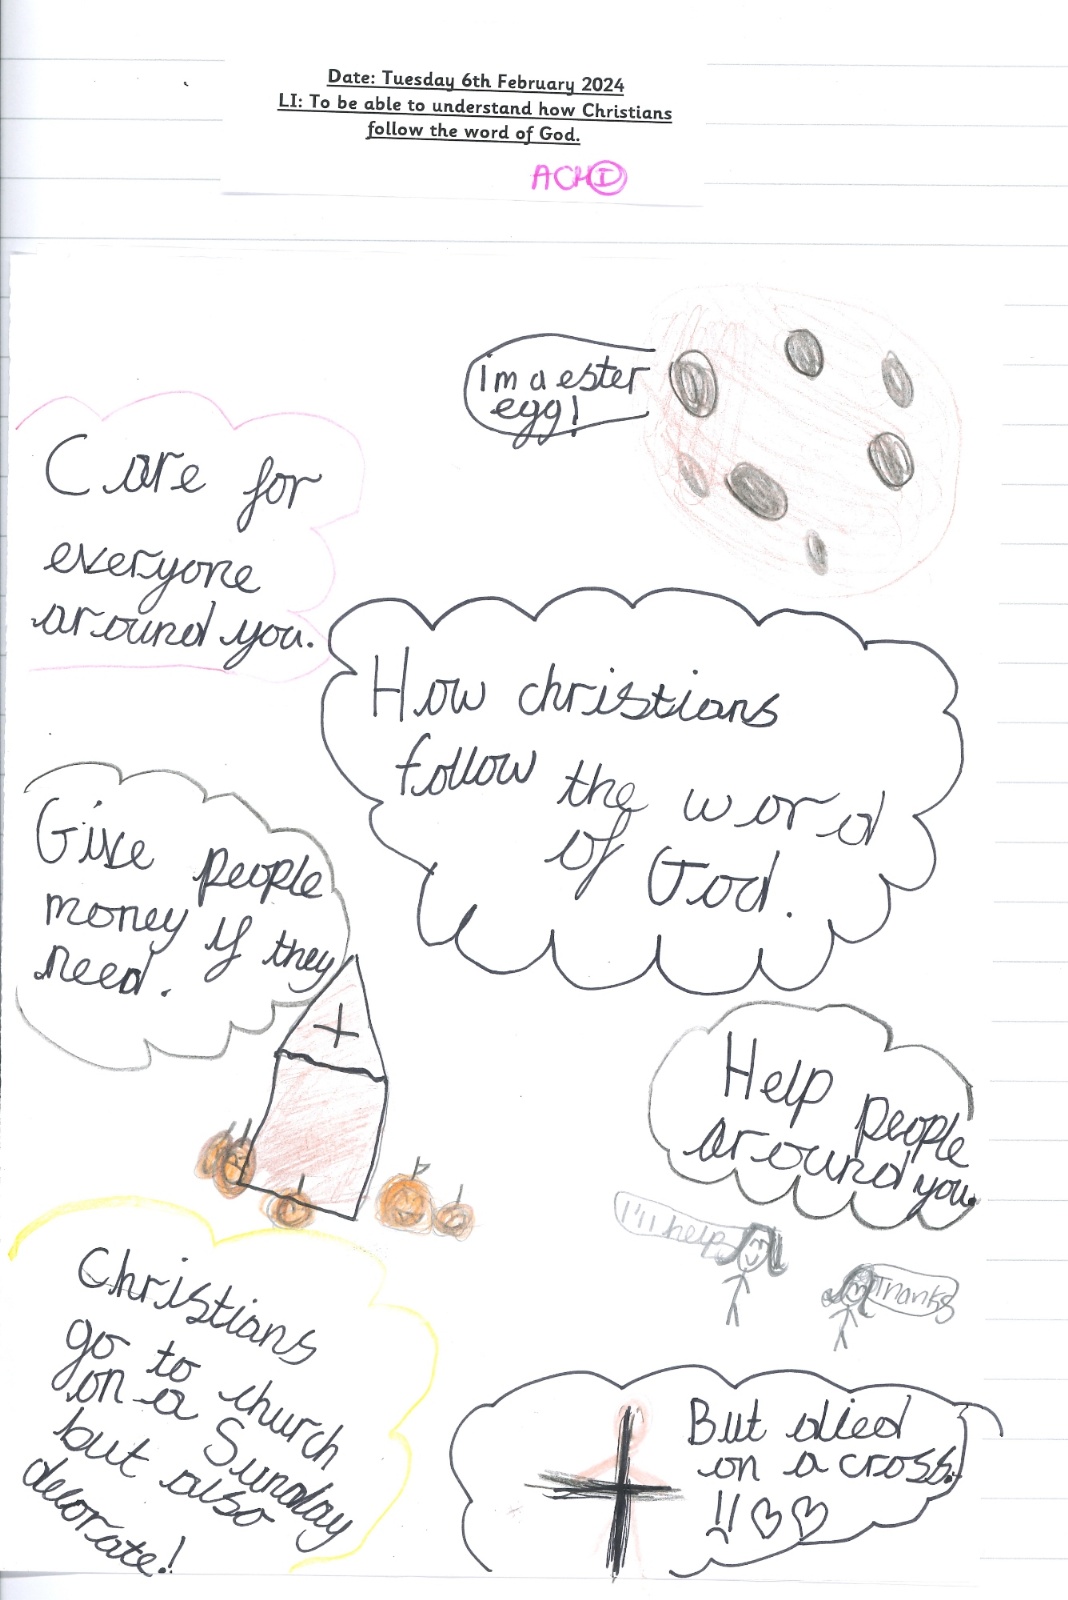 Date: Tuesday 6th February 2024
LI: To be able to understand how Christians
follow the word of God.
ACHI
Im a ester
egg!
Care for
everyone
around you.
How christians
follow the word
of God.
Give people
money if they
need.
Help people
around you.
I'll help
Thanks
Christians
go to church
on a Sunday
but also
decorate!
But died
on a cross.
!!